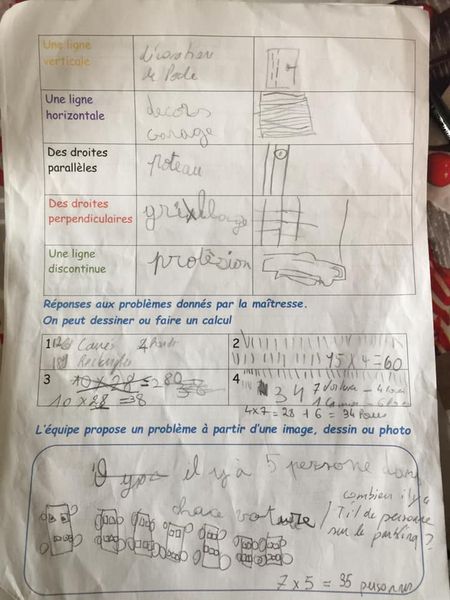 Une ligne verticale
décoration de Porte
Une ligne horizontale
decors garage
Des droites parallèles
poteau
Des droites perpendiculaires
grixllage
Une ligne discontinue
protèsion
Réponses aux problèmes donnés par la maîtresse.
On peut dessiner ou faire un calcul
1
2
15 x 4 = 60
3
10 x 28 = 280
10 x 28 = 38
4
34 7 voiture
4 x 7 = 28 + 6 = 34
L'équipe propose un problème à partir d'une image, dessin ou photo
il y à 5 persone dans
chace voture
combien il y a
T'il de personne
sur le parking ?
7 x 5 = 35 personnes